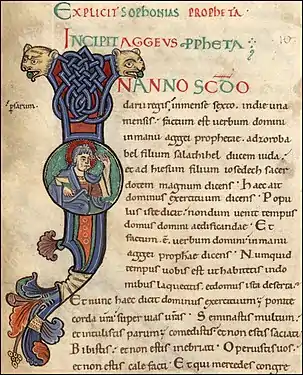 EXPLICIT SOPHONIAS PROPHETA
INCIPIT AGGEUS PPHETA
IN ANNO SCDO
darii regis immense sexto. indie una
mensis. factum est verbum domini
inmanu aggei prophetae. adzoroba
bel filium salathihel ducem iuda.
et ad hiesum filium iosedech sacer
dotem magnum dicens. Haec ait
dominus exercituum dicens. Popu
lus iste dicit. nondum venit tempus
domus domini aedificandae. Et
factum ē. verbum domini in manu
aggei prophae dicens. Numquid
tempus vobis est ut habitetis indo
mibus laqueatis. et domus ista deserta.
Et nunc haec dicit dominus exercituum. ponite
corda vra super vias vras. Seminastis multum.
et intulistis parum. comedistis et non estis satiati.
Bibistis. et non estis inebriati. Operuistis vos.
et non estis cale facti. Et qui mercedes congre